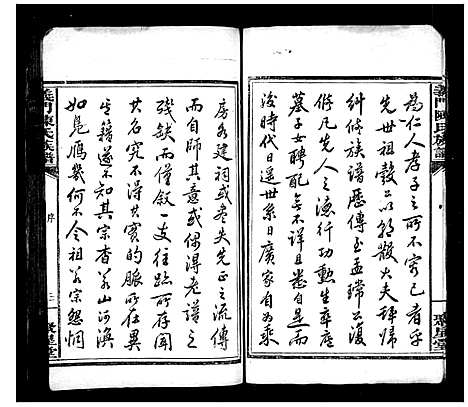 義門陳氏族譜
為仁人孝子之所不容已者乎
先世祖毅公以朝散大夫歸
糾修族譜歷傳至孟瑞公復
修凡先人之德行功勳生卒座
墓子女聘配無不詳且悉自是而
後時代日遠世系日廣家有
房各建祠或盡失先正之流傳
而自師其意或偶得老譜之
殘缺而僅敘一支往跡所存
其名究不得其實的脈所在異
生籍遂不知其宗杳若山河渙
如是雁幾何不令祖若宗怨恫
義門陳氏族譜
序
三
聚星堂
聚星堂